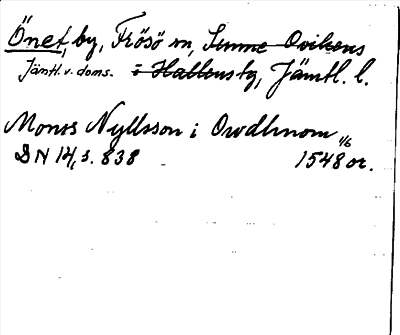 Önet, by, Frösö sn, Sunne Ovikens
Jämtl. v. doms. o Hallens tg, Jämtl. l.
Monss Nyllsson i Owdhnom
DN 14, s. 838 1548 1/6 or.